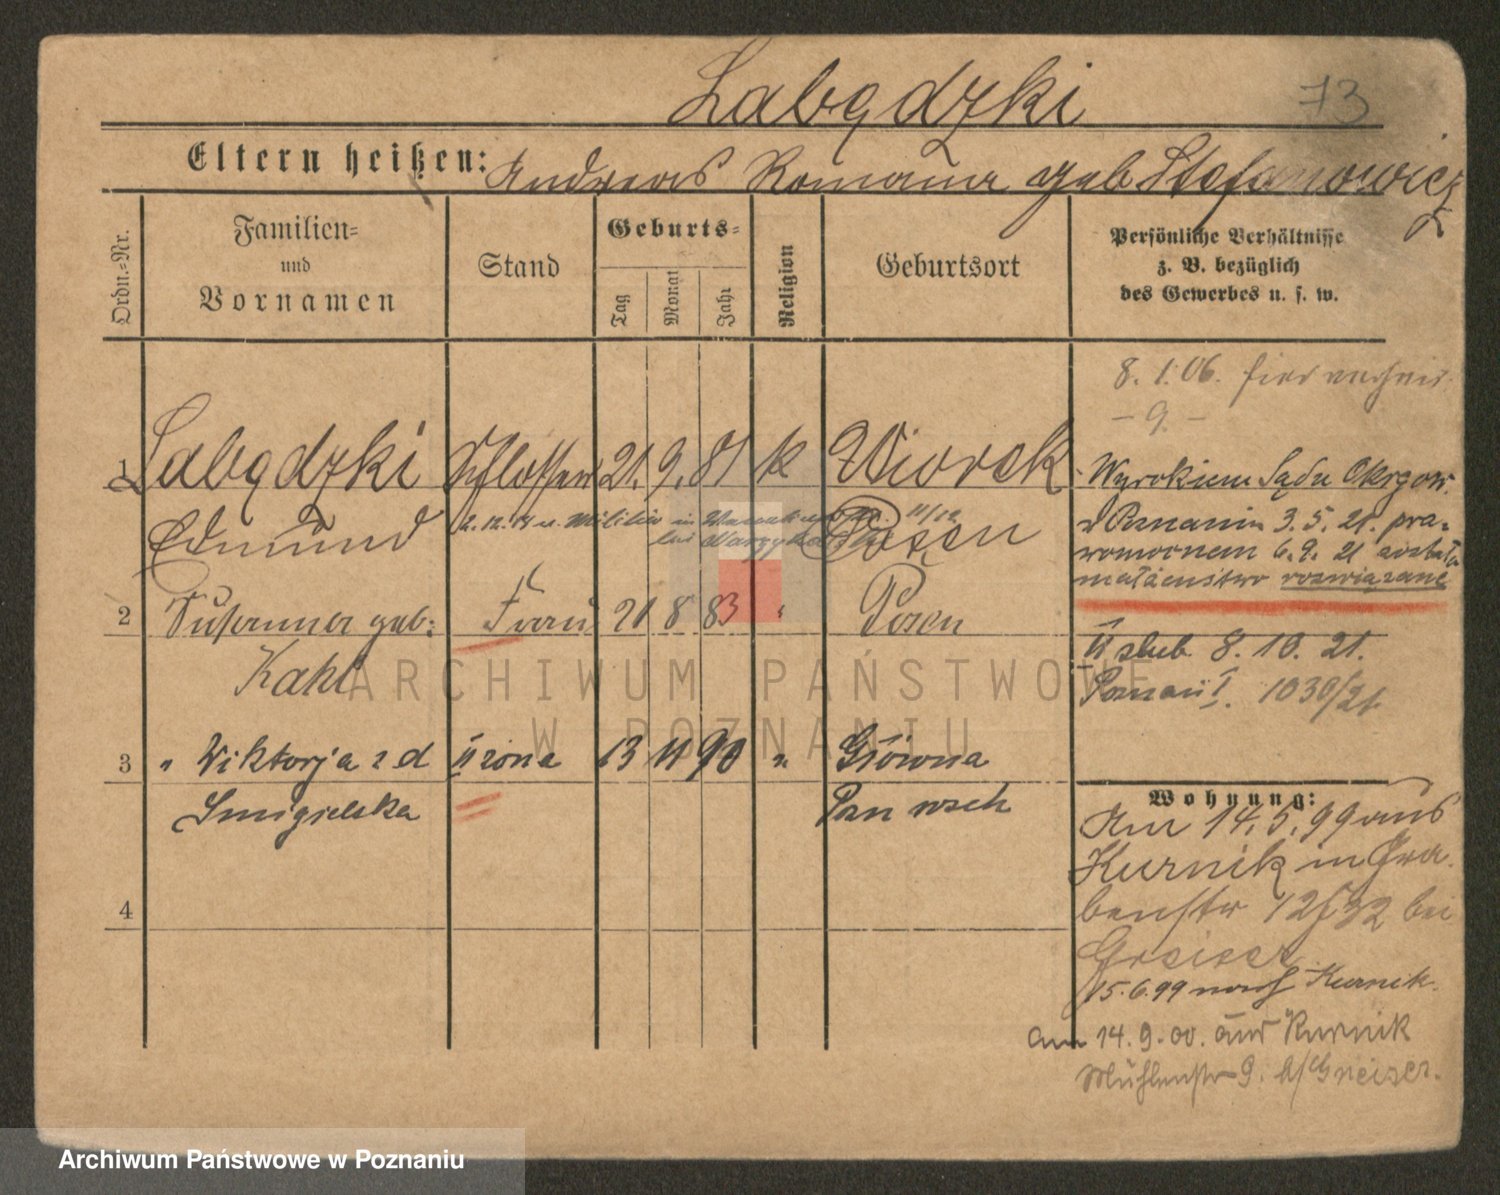 Łabędzki 73
Eltern heißen: Andreas Romana geb Stefanowicz
Ordn.=Nr.
Familien=
und
Vornamen
Stand
Geburts=
Tag
Monat
Jahr
Religion
Geburtsort
Persönliche Verhältnisse
z. B. bezüglich
des Gewerbes u. s. w.
8. 1. 06. hier
- 9. -
1 Łabędzki Schlosser 21. 9. 81 k Wiorek
Edmund Posen
2. 12. 18 u. Militär in 11/12
bei
Wyrokiem Sądu Okręgow.
w Poznaniu 3. 5. 21. pra=
womocnem 6. 9. 21 zostało
małżeństwo rozwiązane
2 Susanna geb: Frau 21 8 83 " Posen
Kahl
II ślub 8. 10. 21.
Poznań I. 1030/21
3 " Wiktorja z d II żona 13 11 90 " Główna
Śmigielska Pzn wsch
4
Wohnung:
Am 14. 5. 99 aus
Kurnik in Gra=
benstr 12/32 bei
15. 6. 99 nach Kurnik.
am 14. 9. 00. aus Kurnik
Mühlenstr 9. b/Gneiser.
ARCHIWUM PAŃSTWOWE
W POZNANIU
Archiwum Państwowe w Poznaniu